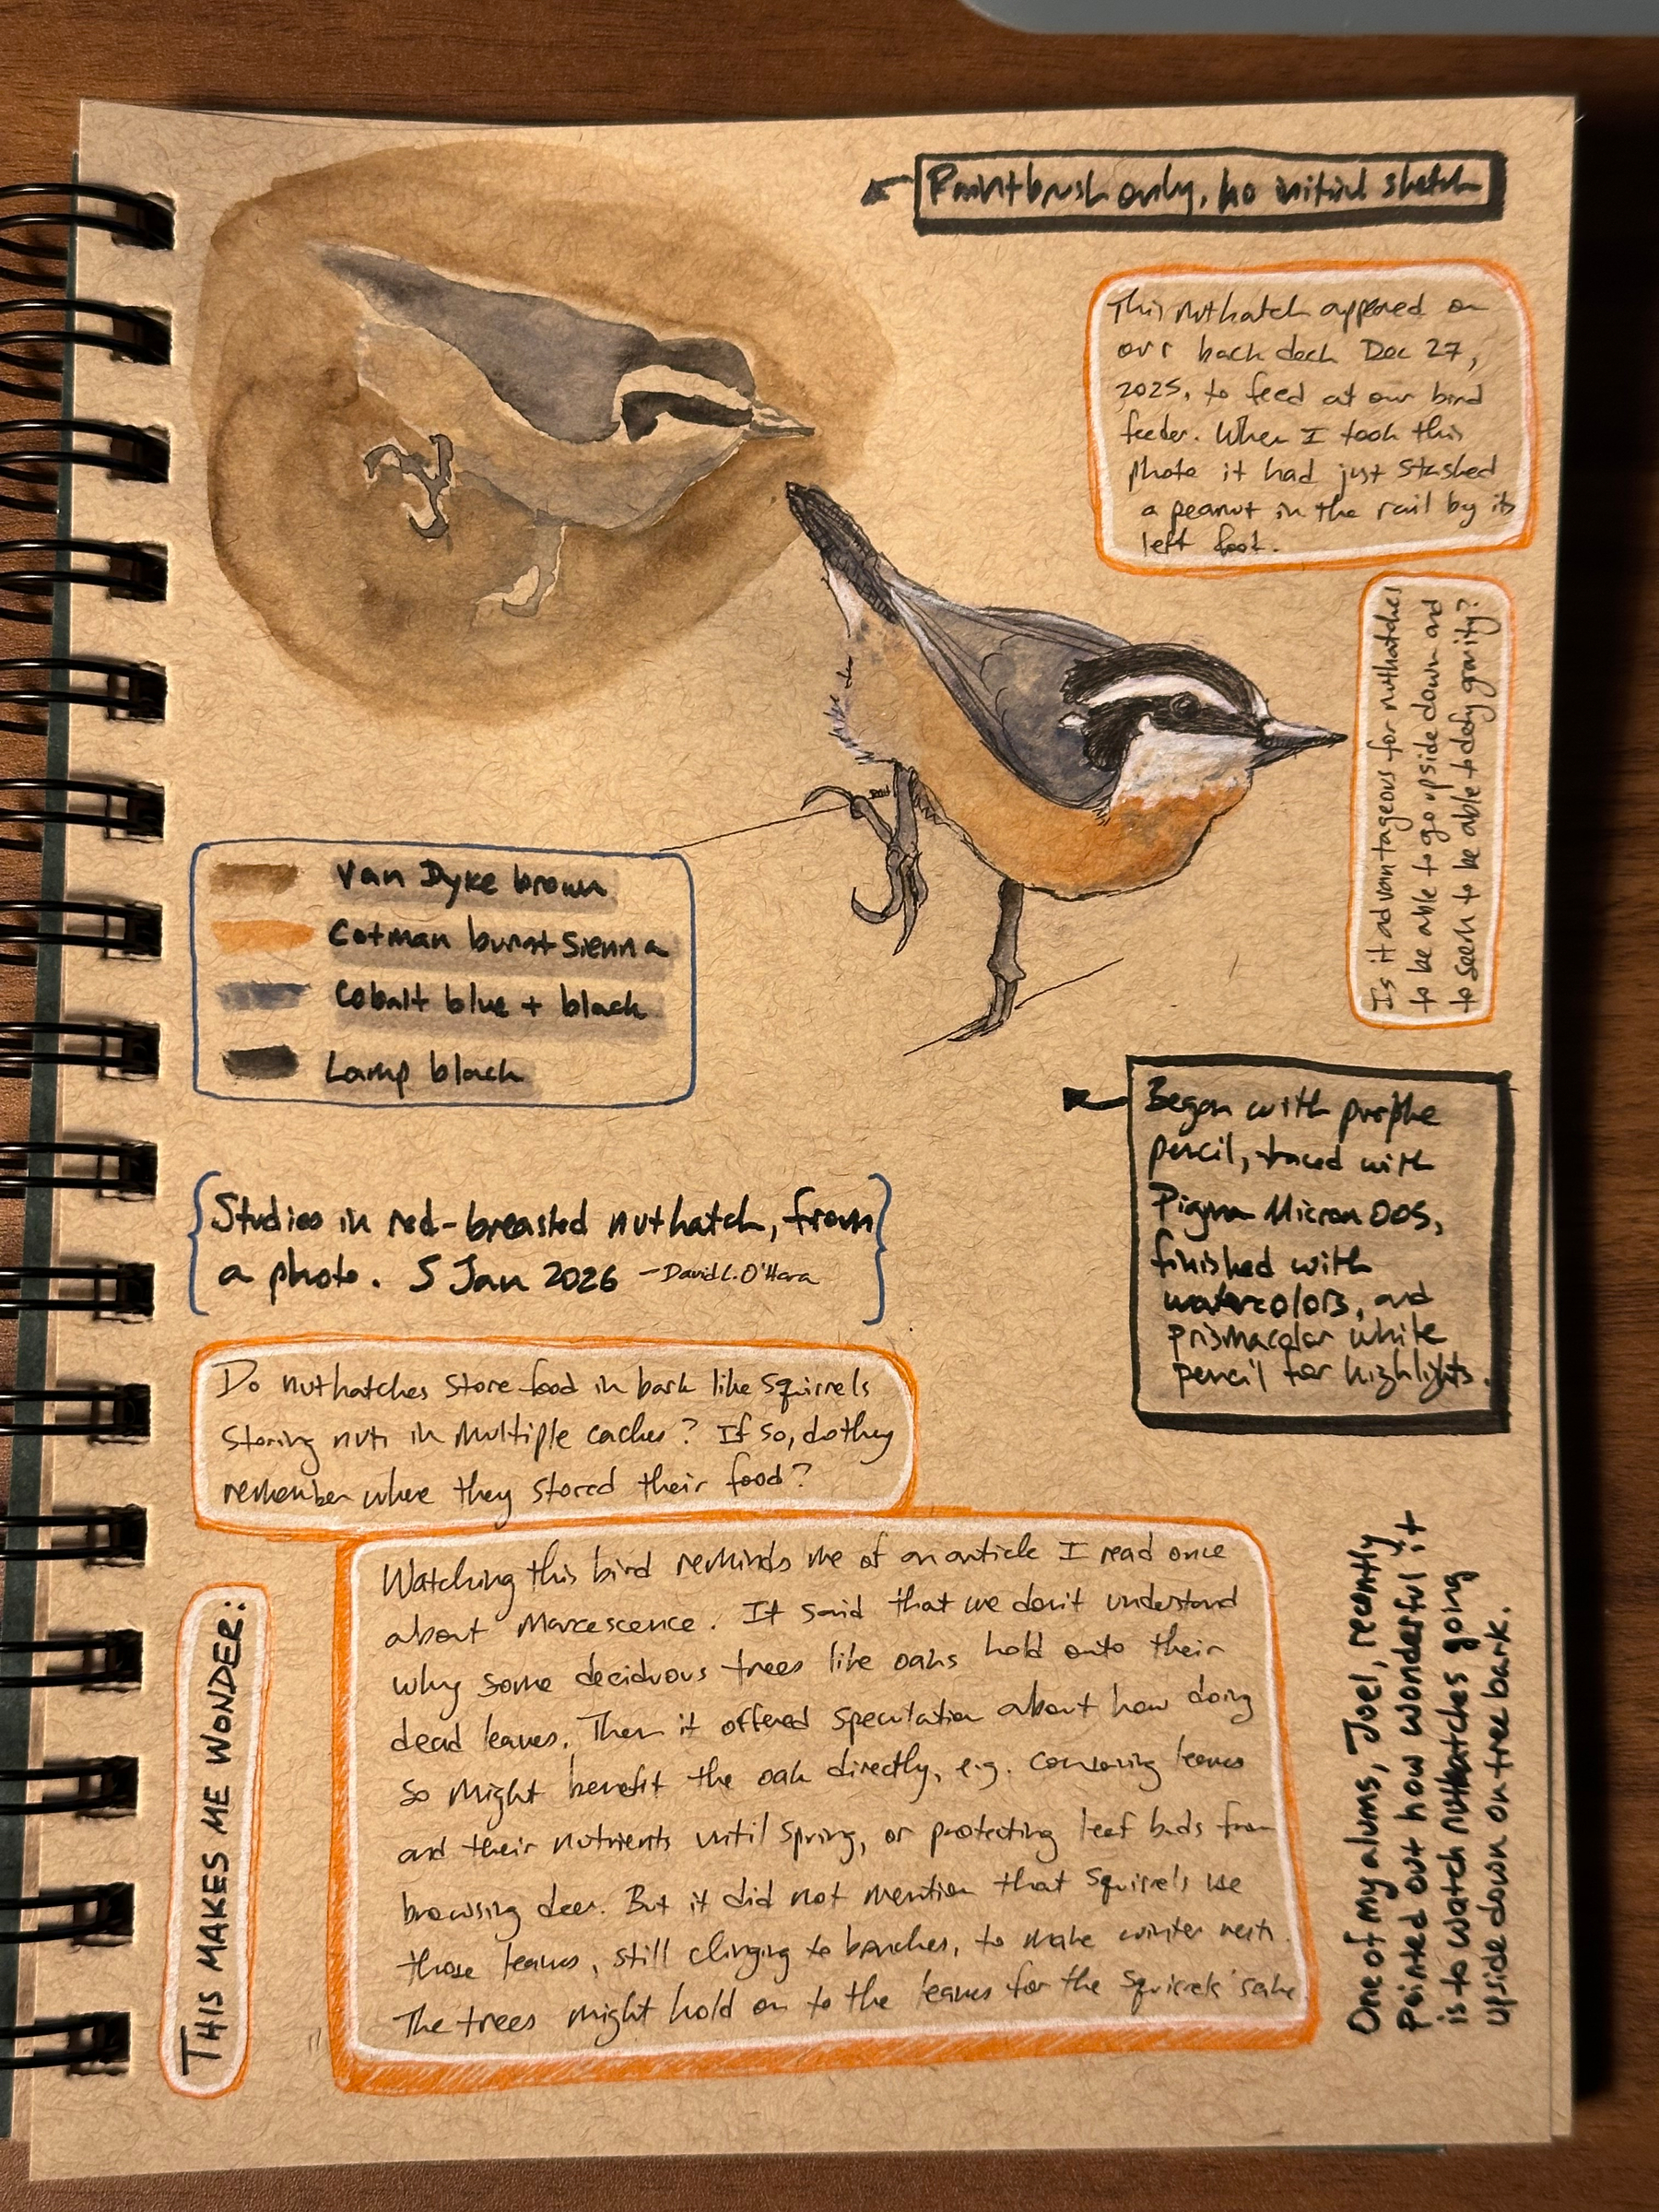 Paintbrush only, no initial sketch
This nuthatch appeared on
our back deck Dec 27,
2025, to feed at our bird
feeder. When I took this
photo it had just stashed
a peanut in the rail by its
left foot.
Is it advantageous for nuthatches
to be able to go upside down and
to seem to be able to defy gravity?
Van Dyke brown
Cotman burnt Sienna
Cobalt blue + black
Lamp black
Began with purple
pencil, traced with
Pigma Micron 005,
finished with
watercolors, and
prismacolor white
pencil for highlights.
Studies in red-breasted nuthatch, from
a photo. 5 Jan 2026 -David L. O'Hara
Do nuthatches store food in bark like squirrels
storing nuts in multiple caches? If so, do they
remember where they stored their food?
THIS MAKES ME WONDER:
Watching this bird reminds me of an article I read once
about marcescence. It said that we don't understand
why some deciduous trees like oaks hold onto their
dead leaves. Then it offered speculation about how doing
so might benefit the oak directly, e.g. conserving leaves
and their nutrients until spring, or protecting leaf buds from
browsing deer. But it did not mention that squirrels use
those leaves, still clinging to branches, to make winter nests.
The trees might hold on to the leaves for the squirrels' sake
One of my alums, Joel, recently
pointed out how wonderful it
is to watch nuthatches going
upside down on tree bark.